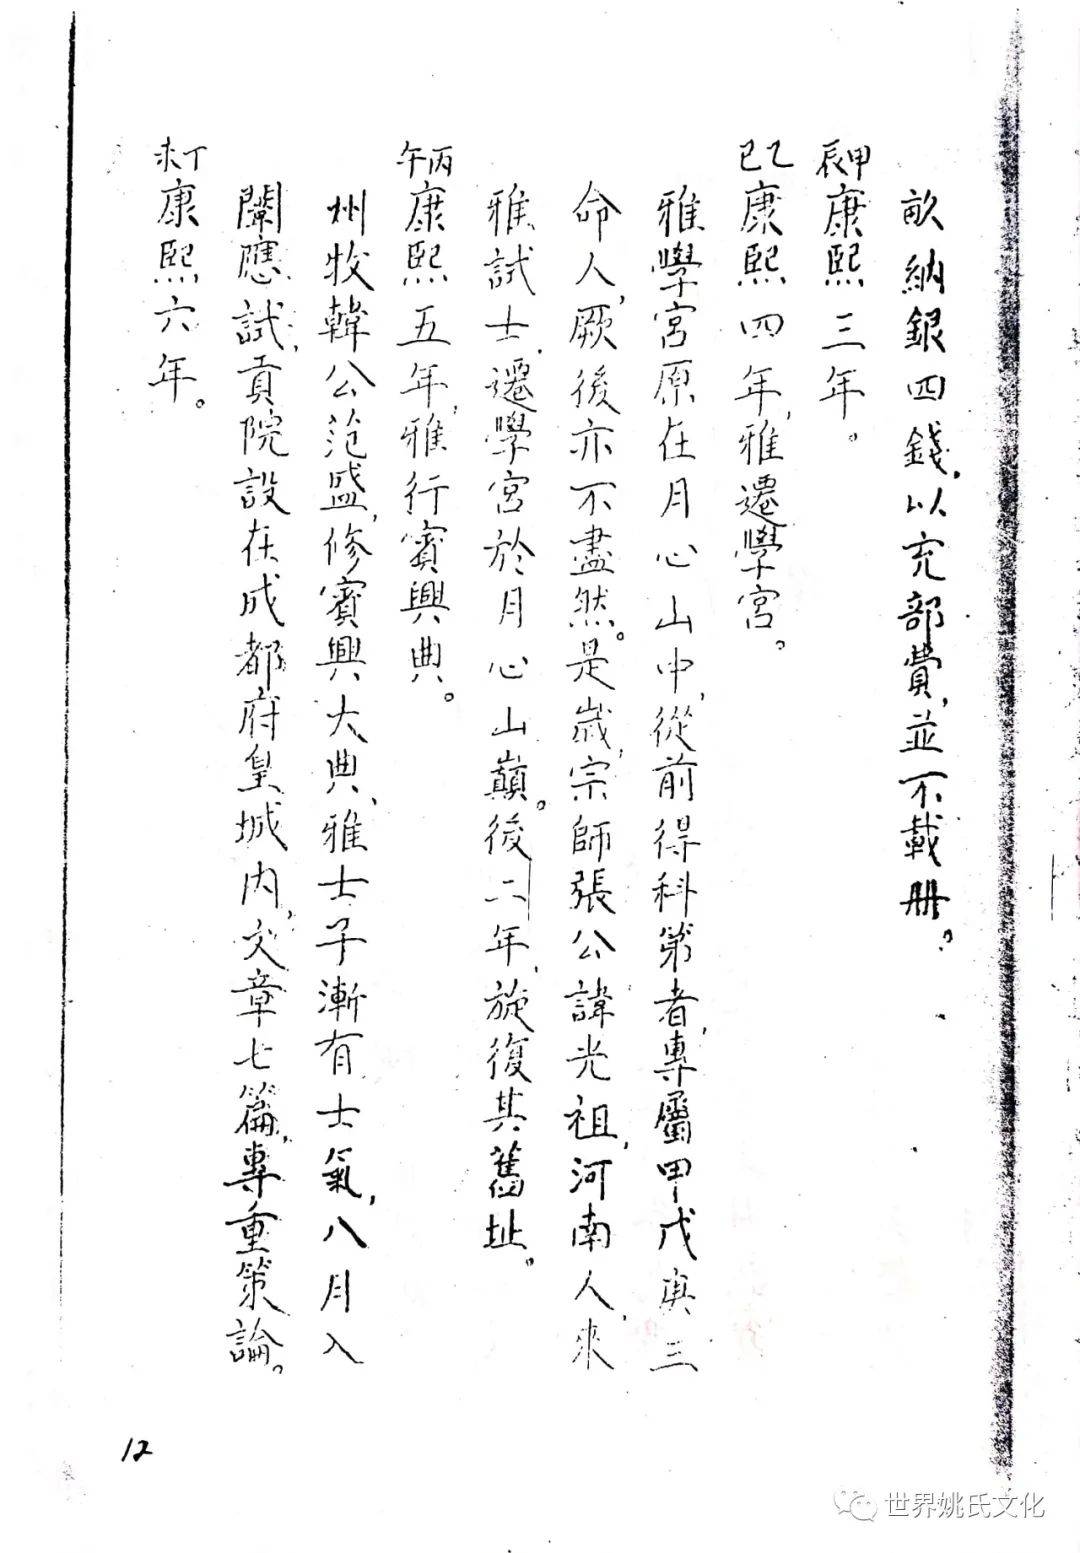 畝納銀四錢，以充部費，並不載册。
甲辰康熙三年。
乙巳康熙四年，雅遷學宮。
雅學宮原在月心山中，從前得科第者，專屬甲戌庚三
命人，厥後亦不盡然。是歲，宗師張公諱光祖，河南人，來
雅試士，遷學宮於月心山巔。後二年，旋復其舊址。
丙午康熙五年，雅行賓興典。
州牧韓公范盛，修賓興大典，雅士子漸有士氣，八月入
闈應試，貢院設在成都府皇城内，文章七篇，專重策論。
丁未康熙六年。
12
世界姚氏文化